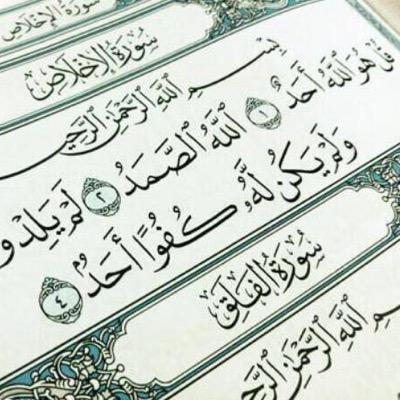 سُورَةُ الإِخْلَاصِ
سُورَةُ الإِخْلَاصِ
بِسْمِ اللَّهِ الرَّحْمَٰنِ الرَّحِيمِ
قُلْ هُوَ اللَّهُ أَحَدٌ ١ اللَّهُ الصَّمَدُ ٢ لَمْ يَلِدْ وَ
وَلَمْ يَكُنْ لَهُ كُفُوًا أَحَدٌ ٤
سُورَةُ الْفَلَقِ
اللَّهِ الرَّحْمَٰنِ